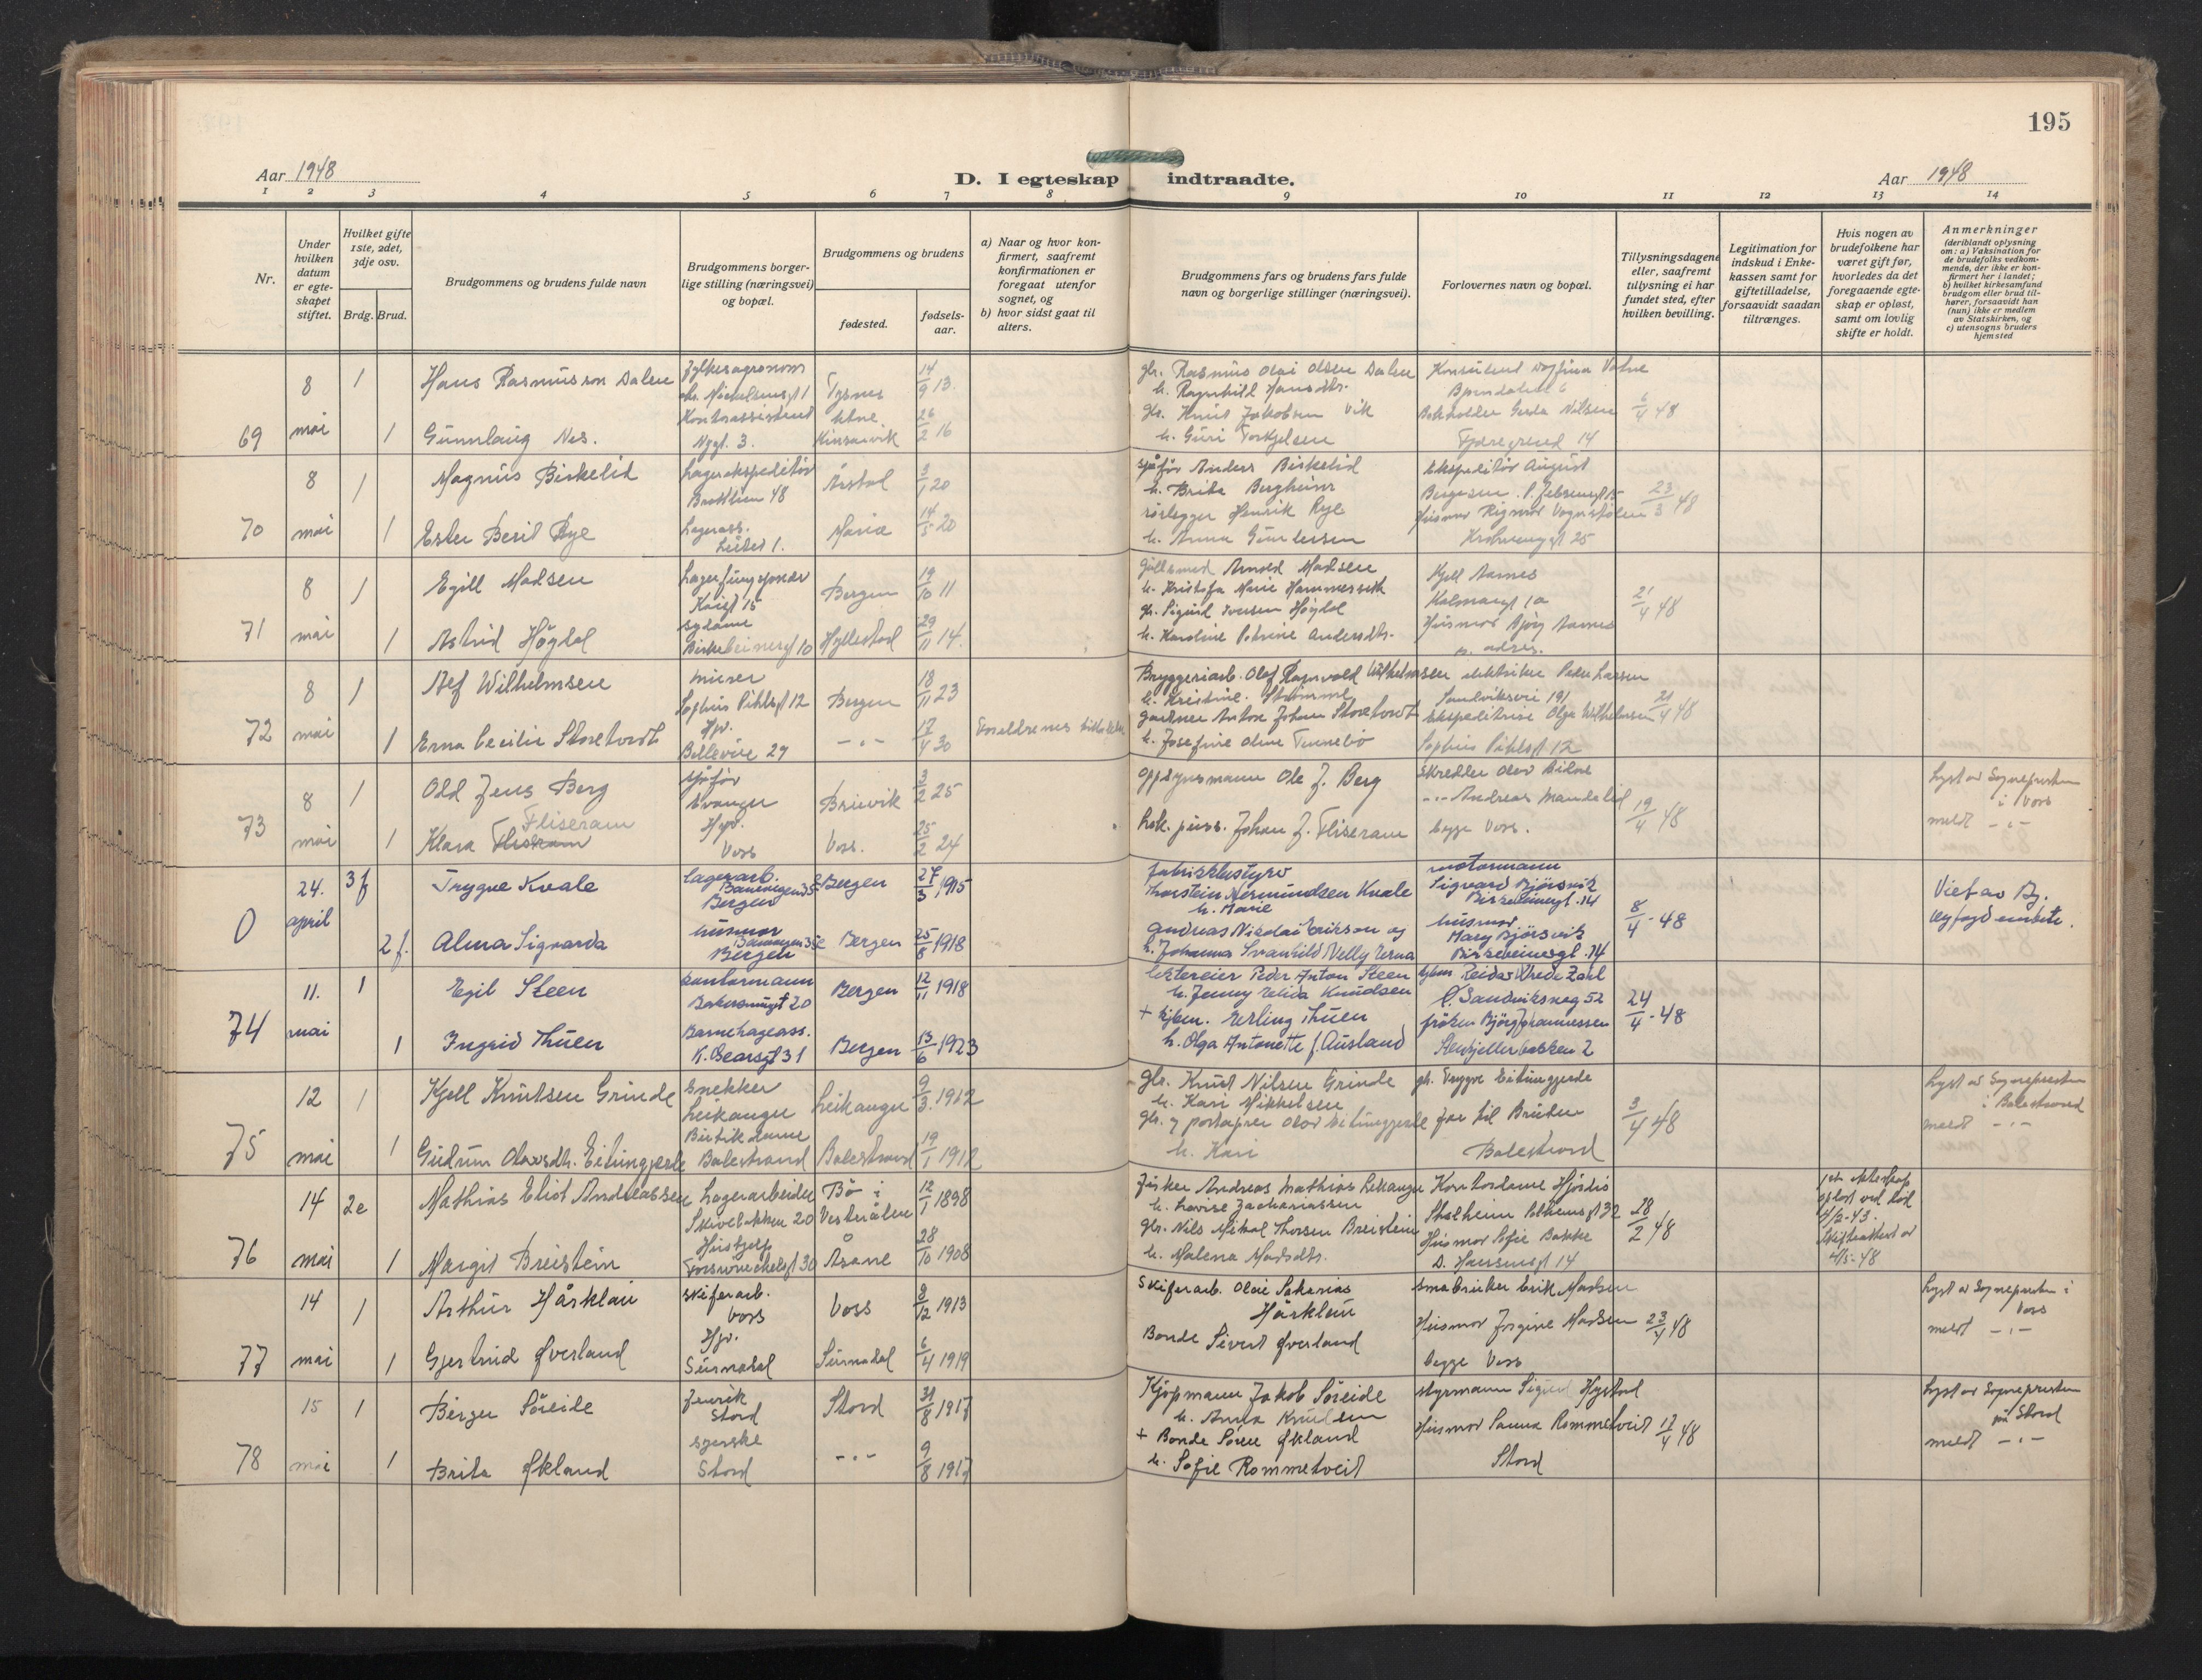 195
Aar 1948
D. I egteskap indtraadte.
Aar 1948
1 2 3 4 5 6 7 8 9 10 11 12 13 14
Nr.
Under hvilken datum er egteskapet stiftet.
Hvilket gifte 1ste, 2det, 3dje osv.
Brdg. Brud.
Brudgommens og brudens fulde navn
Brudgommens borgerlige stilling (næringsvei) og bopæl.
Brudgommens og brudens
fødested.
fødselsaar.
a) Naar og hvor konfirmert, saafremt konfirmationen er foregaat utenfor sognet, og
b) hvor sidst gaat til alters.
Brudgommens fars og brudens fars fulde navn og borgerlige stillinger (næringsvei).
Forlovernes navn og bopæl.
Tillysningsdagene eller, saafremt tillysning ei har fundet sted, efter hvilken bevilling.
Legitimation for indskud i Enkekassen samt for giftetilladelse, forsaavidt saadan tiltrænges.
Hvis nogen av brudefolkene har været gift før, hvorledes da det foregaaende egteskap er opløst, samt om lovlig skifte er holdt.
Anmerkninger
(deriblandt oplysning om: a) Vaksination for de brudefolks vedkommende, der ikke er konfirmert her i landet; b) hvilket kirkesamfund brudgom eller brud tilhører, forsaavidt han (hun) ikke er medlem av Statskirken, og c) utensogns bruders hjemsted
69
8 mai
1
Hans Rasmusson Dalen
Fylkesagronom
Tysnes
14/9 13
gbr. Rasmus Olai Olsen Dalen
h. Ragnhild Hansdtr.
1
Gunnlaug Nes.
Kontorassistent
Nygt. 3.
Kinsarvik
26/2 16
gbr. Knut Jakobsen Vik
h. Guri Torkjelsen
Gerda Nilsen
14
6/4 48
70
8 mai
1
Magnus Birkelid
Lagerekspeditør
Brattlien 48
Årstad
3/1 20
sjåfør Anders Birkelid
h. Brita Bergheim
Ekspeditør August
1
Ester Berit Rye
Lagerass.
Maria
14/5 20
rørlegger Henrik Rye
h. Anna Gundersen
Husmor Rigmor
25
23/3 48
71
8 mai
1
Egill Madsen
15
Bergen
19/10 11
gullsmed Arnold Madsen
h. Kristofa Marie Hammersvik
Kjell Aarnes
Kalmargt 1a
1
Astrid Høydal
sydame
Birkebeinergt 10
Hyllestad
29/11 14.
gbr. Sigurd Iversen Høydal
h. Karoline Petrine Andersdtr.
Husmor Bjørg Aarnes
s. adres.
21/4 48
72
8 mai
1
Alf Wilhelmsen
murer
Sophus Pihlsgt 12
Bergen
18/11 23
Bryggeriarb. Olaf Ragnvald Wilhelmsen
h. Kristine Strømme
elektriker Peder Larsen
Sandviksvei 191
1
Erna Cecilie Storetvedt
Hpr.
Bellevue 29
-"-
17/4 30
Foreldrenes tillatelse
gartner Anton Johan Storetvedt
h. Josefine Oline Tennebø
Ekspeditrise Olga Wilhelmsen
Sophus Pihlsgt 12
21/4 48
73
8 mai
1
Odd Jens Berg
sjåfør
Evanger
Bruvik
3/2 25
oppsynsmann Ole J. Berg
skredder Olav Bidne
-"- Andreas Mandelid
1
Fliseram
Klara
Hpr.
Voss
Voss.
25/2 24
Johan J. Fliseram
begge Voss.
19/4 48
Lyst av Sognepresten
i Voss
meldt -"-
0
24. april
3 f
Trygve Kvale
lagerarb.
Bergen
Bergen
27/3 1915
fabrikkbestyrer
Thorstein Hermundsen Kvale
h. Marie
motormann
Sigvard Bjørsvik
Birkebeinergt. 14
2 f.
Alma Sigvarda
husmor
Bergen
Bergen
25/8 1918
Andreas Nikolai Erikson og
h. Johanna Svanhild Nelly Erna
husmor
Mary Bjørsvik
Birkebeinergt. 14
8/4-48
Viet av By-
og fogd embete.
74
11. mai
1
Egil Steen
kontormann
20
Bergen
12/11 1918
Peder Anton Steen
h. Jenny Elida Knudsen
kjbm. Reidar Wrede Zahl
Ø. Sandviksveg 52
1
Ingrid Thuen
Barnehageass.
31
Bergen
13/6 1923
+ kjbm. Erling Thuen
h. Olga Antonette f. Ausland
frøken Bjørg Johannessen
Stenkjellerbakken 2
24/4-48
75
12 mai
1
Kjell Knutsen Grinde
snekker
Leikanger
Leikanger
9/3. 1912
gbr. Knut Nilsen Grinde
h. Kari Mikkelsen
gb. Trygve Eitungjerde
1
Gudrun Olavsdtr. Eitungjerde
Butikdame
Balestrand
Balestrand
19/1 1912
gbr. og poståpner Olav Eitungjerde
h. Kari
far til Bruden
Balestrand
3/4 48
Lyst av Sognepresten
i Balestrand
meldt -"-
76
14 mai
2e
Mathias Eliot Andreassen
Lagerarbeider
Skivebakken 20
Bø i
Vesterålen
12/1 1898
Fisker Andreas Mathias Lekanger
h. Lovise Zachariassen
Kontordame Hjørdis
Stalheim
32
1
Margit Breistein
Hushjelp
30
Åsane
28/10 1908
gbr. Nils Mikal Thorsen Breistein
h. Malena Madsdtr.
Husmor Sofie Bakke
D. Hansensgt 14
28/2 48
1st. ekteskap
opløst ved død
4/2-43.
Skifteattest av
4/5-48
77
14 mai
1
Arthur Hårklau
skiferarb.
Voss
Voss
8/12 1913
Skiferarb. Olai Sakarias
Hårklau
småbruker Erik Madsen
1
Gjertrud Øverland
Hpr.
Surnadal
Surnadal
6/4 1919
Bonde Sivert Øverland
Husmor Jorgine Madsen
begge Voss
23/4 48
Lyst av Sognepresten i
Voss
meldt -"-
78
15 mai
1
Birger Søreide
Stord
Stord
31/8 1917
Kjøpmann Jakob Søreide
h. Anna Knudsen
styrmann Sigurd Hystad
1
Brita Økland
syerske
Stord
-"-
9/8 1917
+ Bonde Søren Økland
h. Sofie Rommetveit
Husmor Sanna Rommetveit
Stord
17/4 48
Lyst av Sognepresten
på Stord
meldt -"-